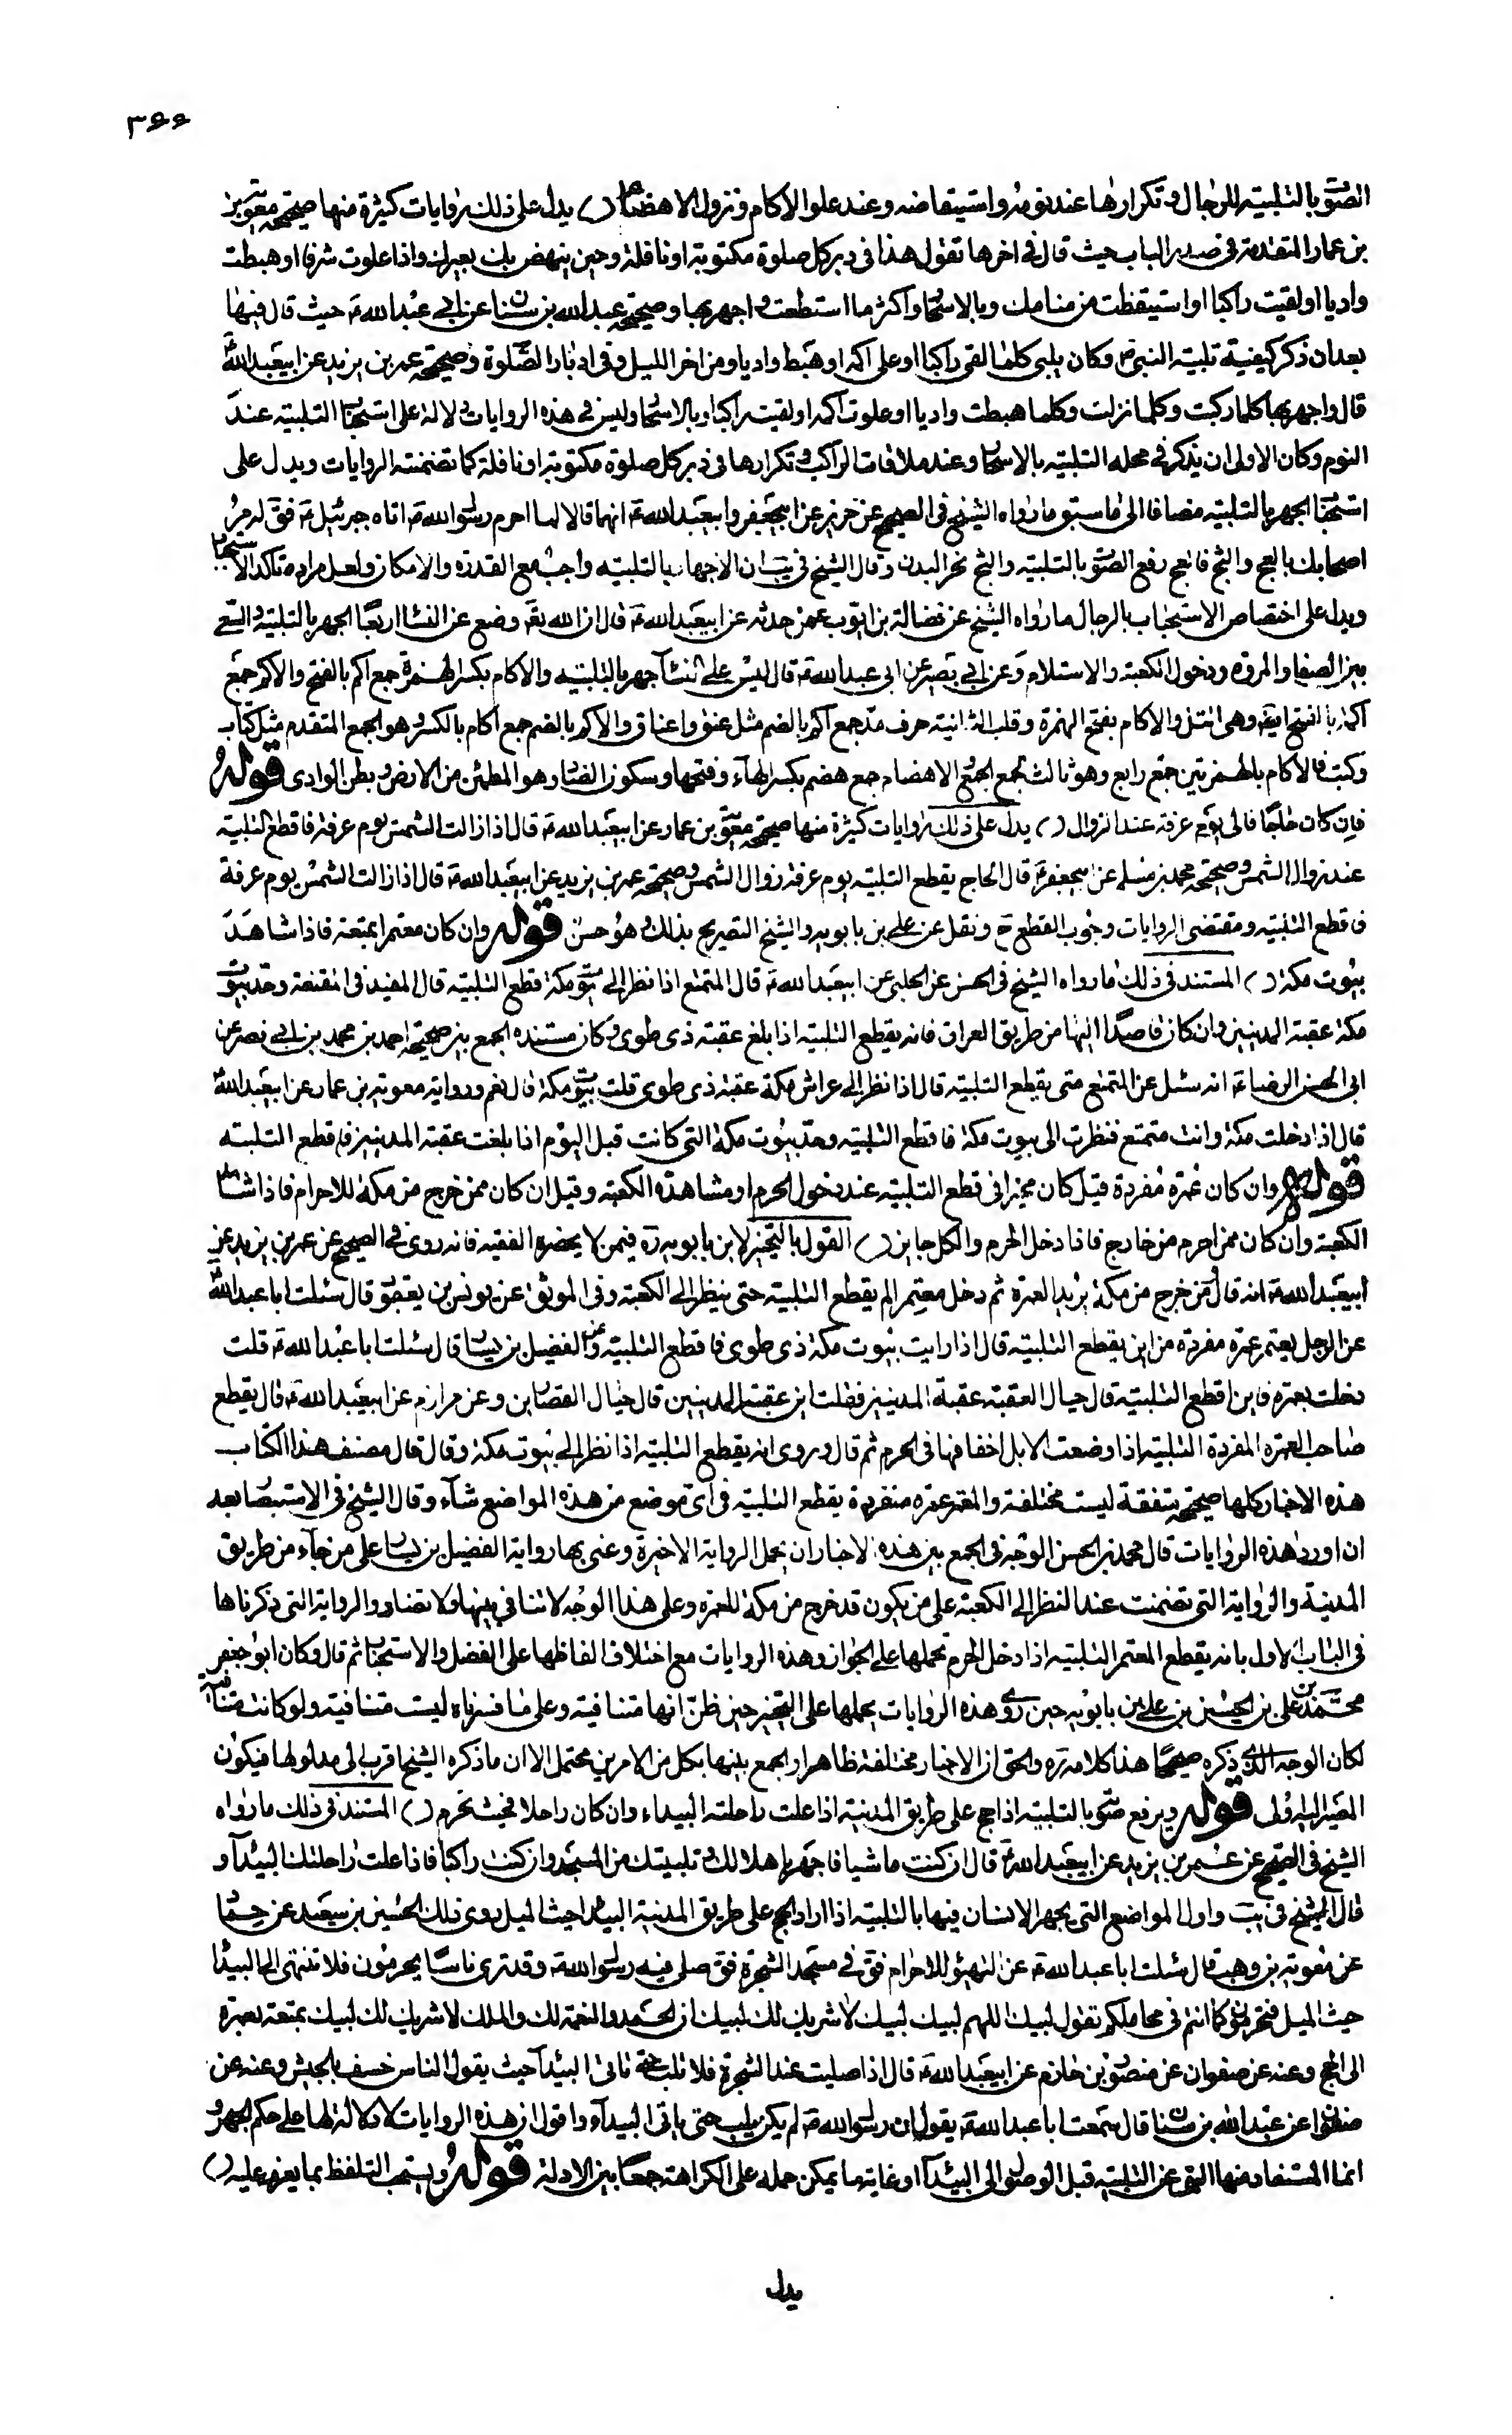 ٣٤٤
الصّوت بالتلبية للرجال وتكرارها عند نومه واستيقاضه وعند علو الاكام ونزول الاهضام () يدل على ذلك روايات كثيرة منها صحيحة معوية
بن عمار المتقدمة فى صدر الباب حيث قال فى اخرها تقول هذا فى دبر كل صلوة مكتوبة او نافلة وحين ينهض بك بعيرك واذا علوت شرفا او هبطت
واديا او لقيت راكبا او استيقظت من منامك وبالاسحار واكثر ما استطعت واجهر بها وصحيحة عبد الله بن سنان عن ابي عبد الله ع حيث قال فيها
بعد ان ذكر كيفية تلبية النبي ص وكان يلبى كلما لقى راكبا او على اكمه او هبط واديا ومن اخر الليل وفى ادبار الصّلوة وصحيحة عمر بن يزيد عن ابيعبد الله
قال واجهر بها كلما ركبت وكلما نزلت وكلما هبطت واديا او علوت اكمه او لقيت راكبا وبالاسحار وليس فى هذه الروايات دلالة على استحباب التلبية عند
النوم وكان الاولى ان يذكر فى محله التلبية بالاسحار وعند ملاقات الراكب وتكرارها فى دبر كل صلوة مكتوبة او نافلة كما تضمنته الروايات ويدل على
استحباب الجهر بالتلبية مضافا الى ما سبق ما رواه الشيخ فى الصحيح عن حريز عن ابيجعفر وابيعبد الله ع انهما قالا لما احرم رسول الله ص اتاه جبرئيل ع فق له مر
اصحابك بالعج والثج فالعج رفع الصّوت بالتلبية والثج نحر البدن وقال الشيخ فى يب ان الاجهار بالتلبية واجب مع القدرة والامكان ولعل مراده تاكد الاستحباب
ويدل على اختصاص الاستحباب بالرجال ما رواه الشيخ عن فضالة بن ايوب عمن حدثه عن ابيعبد الله ع قال ان الله تع وضع عن النساء اربعا الجهر بالتلبية والسّعى
بين الصفا والمروه ودخول الكعبة والاستلام وعن ابي بصير عن ابى عبد الله ع قال ليس على النساء جهر بالتلبية والاكام بكسر الهمزة جمع اكم بالفتح والاكم جمع
اكمة بالفتح ايضه وهى التل والاكام بفتح الهمزة وقلب الثانية حرف مد جمع اكم بالضم مثل عنق واعناق والاكم بالضم جمع اكام بالكسر وهو الجمع المتقدم مثل كتاب
وكتب فالاكام بالهمزتين جمع رابع وهو ثالث لجمع الجمع الاهضام جمع هضم بكسر الهاء وفتحها وسكون الضاد وهو المطمئن من الارض وبطن الوادى قوله
فان كان حاجا فالى يوم عرفة عند الزوال () يدل على ذلك روايات كثيرة منها صحيحة معوية بن عمار عن ابيعبد الله ع قال اذا زالت الشمس يوم عرفة فاقطع التلبية
عند زوال الشمس وصحيحة محمد بن مسلم عن ابيجعفر ع قال الحاج يقطع التلبية يوم عرفة زوال الشمس وصحيحة عمر بن يزيد عن ابيعبد الله ع قال اذا زالت الشمس يوم عرفة
فاقطع التلبية ومقتضى الروايات وجوب القطع ح ونقل عن على بن بابويه والشيخ التصريح بذلك وهو حسن قوله وان كان معتمرا بمتعة فاذا شاهد
بيوت مكة () المستند فى ذلك ما رواه الشيخ فى الحسن عن الحلبى عن ابيعبد الله ع قال المتمتع اذا نظر الى بيوت مكة قطع التلبية قال المفيد فى المقنعة وحد بيوت
مكة عقبة المدنيين وان كان قاصدا اليها من طريق العراق فانه يقطع التلبية اذا بلغ عقبة ذى طوى وكان مستنده الجمع بين صحيحة احمد بن محمد بن ابي نصر عن
ابى الحسن الرضا ع انه سئل عن المتمتع متى يقطع التلبية قال اذا نظر الى عراش مكة عقبة ذى طوى قلت بيوت مكة قال نعم ورواية معوية بن عمار عن ابيعبد الله
قال اذا دخلت مكة وانت متمتع فنظرت الى بيوت مكة فاقطع التلبية وحد بيوت مكة التى كانت قبل اليوم اذا بلغت عقبة المدنيين فاقطع التلبية
قوله وان كان عمرة مفردة قيل كان مخيرا فى قطع التلبية عند دخول الحرم او مشاهدة الكعبة وقيل ان كان ممن خرج من مكة للاحرام فاذا شاهد
الكعبة وان كان ممن احرم من خارج فاذا دخل الحرم والكل جايز () القول بالتخيير لابن بابويه ره فيمن لا يحضره الفقيه فانه روى فى الصحيح عن عمر بن يزيد عن
ابيعبد الله ع انه قال من خرج من مكة يريد العمرة ثم دخل معتمرا لم يقطع التلبية حتى ينظر الى الكعبة وفى الموثق عن يونس بن يعقوب قال سئلت ابا عبد الله
عن الرجل يعتمر عمرة مفردة من اين يقطع التلبية قال اذا رايت بيوت مكة ذى طوى فاقطع التلبية وعن الفضيل بن يسار قال سئلت ابا عبد الله ع قلت
دخلت بعمرة فاين اقطع التلبية قال حيال العقبة عقبة المدنيين فقلت اين عقبة المدنيين قال حيال القصارين وعن مرازم عن ابيعبد الله ع قال يقطع
صاحب العمرة المفردة التلبية اذا وضعت الابل اخفافها فى الحرم ثم قال وروى انه يقطع التلبية اذا نظر الى بيوت مكة وقال قال مصنف هذا الكتاب
هذه الاخبار كلها صحيحة متفقة ليست مختلفة والمعتمر عمرة منفردة يقطع التلبية فى اى موضع من هذه المواضع شاء وقال الشيخ فى الاستبصار بعد
ان اورد هذه الروايات قال محمد بن الحسن الوجه فى الجمع بين هذه الاخبار ان يحمل الرواية الاخيرة وعنى بها رواية الفضيل بن يسار على من جاء من طريق
المدينة والرواية التى تضمنت عند النظر الى الكعبة على من يكون قد خرج من مكة للعمرة وعلى هذا الوجه لا تنافي بينها ولا تضاد والرواية التى ذكرناها
فى الباب الاول بانه يقطع المعتمر التلبية اذا دخل الحرم نحملها على الجواز وهذه الروايات مع اختلاف الفاظها على الفضل والاستحباب ثم قال وكان ابو جعفر
محمّد بن على بن الحسين بن على بن بابويه حين روى هذه الروايات يحملها على التخيير حين ظنّ انها متنافية وعلى ما فسرناه ليست متنافية ولو كانت متنافية
لكان الوجه الذى ذكره صحيحا هذا كلامه ره والحق ان الاخبار مختلفة ظاهرا والجمع بينها بكل من الامرين محتمل الا ان ما ذكره الشيخ اقرب الى مدلولها فيكون
المصير اليه اولى قوله ويرفع صوته بالتلبية اذا حج على طريق المدينة اذا علت راحلته البيداء وان كان راجلا فحيث يحرم () المستند فى ذلك ما رواه
الشيخ فى الصحيح عن عمر بن يزيد عن ابيعبد الله ع قال ان كنت ماشيا فاجهر باهلالك وتلبيتك من المسجد وان كنت راكبا فاذا علت راحلتك البيداء و
قال الشيخ فى يب واول المواضع التى يجهر الانسان فيها بالتلبية اذا اراد الحج على طريق المدينة البيداء حيث الميل روى ذلك الحسين بن سعيد عن حماد
عن معوية بن وهب قال سئلت ابا عبد الله ع عن التهيؤ للاحرام فق فى مسجد الشجرة فق صلى فيه رسول الله ص وقد ترى ناسا يحرمون فلا تنتهى الى البيداء
حيث الميل فتحرمون كما انتم فى محاملكم تقول لبيك اللهم لبيك لبيك لا شريك لك لبيك ان الحمد والنعمة لك والملك لا شريك لك لبيك بمتعة بعمرة
الى الحج وعنه عن صفوان عن منصور بن حازم عن ابيعبد الله ع قال اذا صليت عند الشجرة فلا تلب حتى تاتى البيداء حيث يقول الناس خسف بالجيش وعنه عن
صفوان عن عبد الله بن سنان قال سمعت ابا عبد الله ع يقول ان رسول الله ص لم يكن يلبى حتى ياتى البيداء واقول ان هذه الروايات لا دلالة لها على حكم الجهر و
انما المستفاد منها النهى عن التلبية قبل الوصول الى البيداء او غاية ما يمكن حمله على الكراهة جمعا بين الادلة قوله ويستحب التلفظ بما يعزم عليه ()
يدل